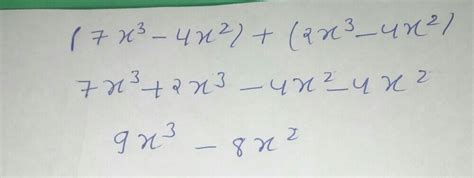 (7x³-4x²)+(2x³-4x²)
7x³+2x³-4x²-4x²
9x³-8x²